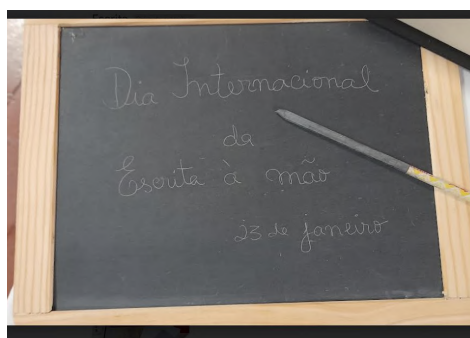 Dia Internacional
da
Escrita à mão
23 de janeiro